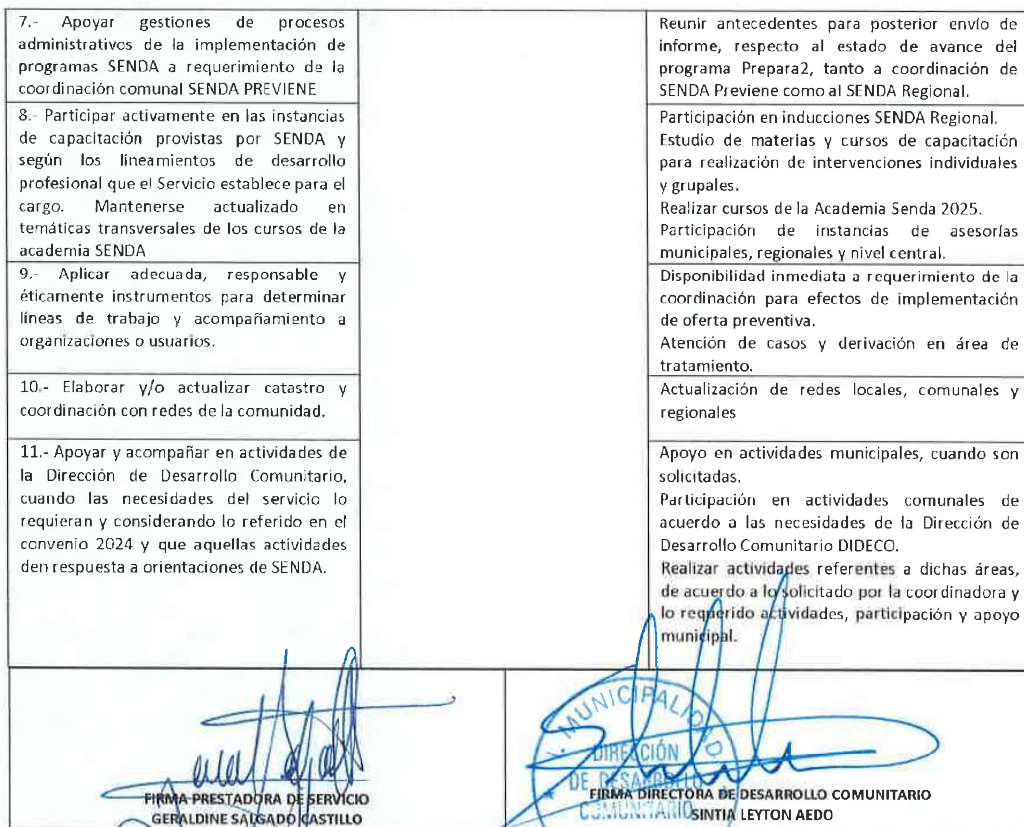 7.- Apoyar gestiones de procesos
administrativos de la implementación de
programas SENDA a requerimiento de la
coordinación comunal SENDA PREVIENE
Reunir antecedentes para posterior envío de
informe, respecto al estado de avance del
programa Prepara2, tanto a coordinación de
SENDA Previene como al SENDA Regional.
8.- Participar activamente en las instancias
de capacitación provistas por SENDA y
según los lineamientos de desarrollo
profesional que el Servicio establece para el
cargo. Mantenerse actualizado en
temáticas transversales de los cursos de la
academia SENDA
Participación en inducciones SENDA Regional.
Estudio de materias y cursos de capacitación
para realización de intervenciones individuales
y grupales.
Realizar cursos de la Academia Senda 2025.
Participación de instancias de asesorías
municipales, regionales y nivel central.
9.- Aplicar adecuada, responsable y
éticamente instrumentos para determinar
líneas de trabajo y acompañamiento a
organizaciones o usuarios.
Disponibilidad inmediata a requerimiento de la
coordinación para efectos de implementación
de oferta preventiva.
Atención de casos y derivación en área de
tratamiento.
10.- Elaborar y/o actualizar catastro y
coordinación con redes de la comunidad.
Actualización de redes locales, comunales y
regionales
11.- Apoyar y acompañar en actividades de
la Dirección de Desarrollo Comunitario,
cuando las necesidades del servicio lo
requieran y considerando lo referido en el
convenio 2024 y que aquellas actividades
den respuesta a orientaciones de SENDA.
Apoyo en actividades municipales, cuando son
solicitadas.
Participación en actividades comunales de
acuerdo a las necesidades de la Dirección de
Desarrollo Comunitario DIDECO.
Realizar actividades referentes a dichas áreas,
de acuerdo a lo solicitado por la coordinadora y
lo requerido actividades, participación y apoyo
municipal.
FIRMA PRESTADORA DE SERVICIO
GERALDINE SALGADO CASTILLO
I. MUNICIPALIDAD
DIRECCIÓN
DE DESARROLLO
COMUNITARIO
FIRMA DIRECTORA DE DESARROLLO COMUNITARIO
SINTIA LEYTON AEDO